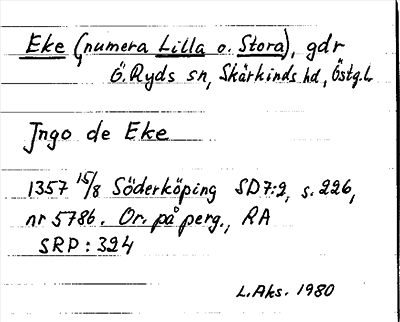 Eke (numera Lilla o. Stora), gdr
Ö. Ryds sn, Skärkinds hd, Östg.L
Jngo de Eke
1357 15/8 Söderköping SD7:2, s. 226,
nr 5786. Or. på perg., RA
SRP: 324
L.Aks. 1980